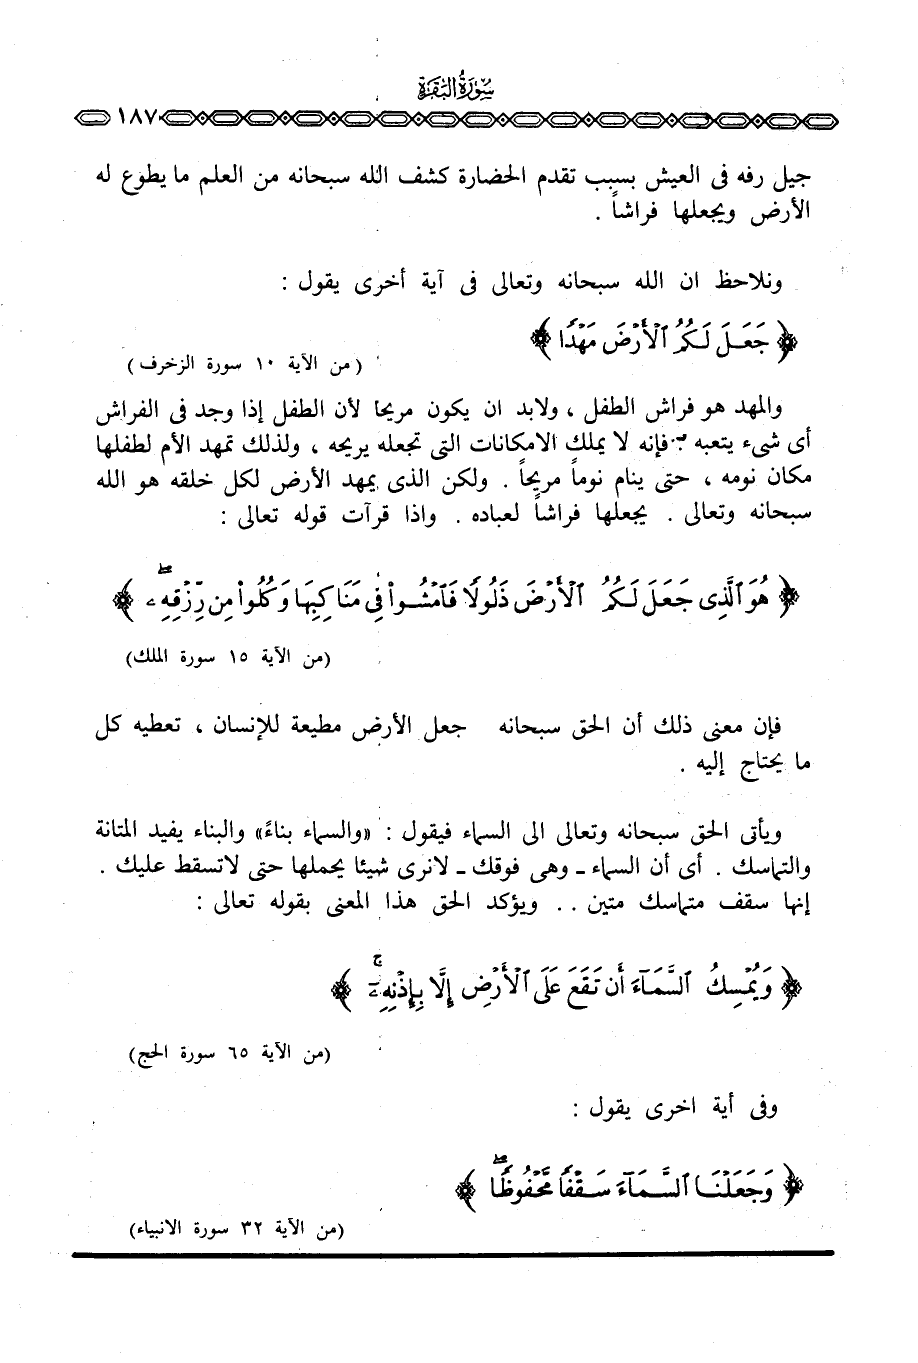 سورة البقرة
١٨٧
جيل رفه فى العيش بسبب تقدم الحضارة كشف الله سبحانه من العلم ما يطوع له
الأرض ويجعلها فراشاً .
ونلاحظ ان الله سبحانه وتعالى فى آية أخرى يقول :
﴿ جَعَلَ لَكُمُ ٱلْأَرْضَ مَهْدًا ﴾
( من الآية ١٠ سورة الزخرف )
والمهد هو فراش الطفل ، ولابد ان يكون مريحا لأن الطفل إذا وجد فى الفراش
أى شىء يتعبه فإنه لا يملك الامكانات التى تجعله يريحه ، ولذلك تمهد الأم لطفلها
مكان نومه ، حتى ينام نوماً مريحاً . ولكن الذى يمهد الأرض لكل خلقه هو الله
سبحانه وتعالى . يجعلها فراشاً لعباده . واذا قرآت قوله تعالى :
﴿ هُوَ ٱلَّذِى جَعَلَ لَكُمُ ٱلْأَرْضَ ذَلُولًا فَٱمْشُوا۟ فِى مَنَاكِبِهَا وَكُلُوا۟ مِن رِّزْقِهِۦ ۖ ﴾
(من الآية ١٥ سورة الملك)
فإن معنى ذلك أن الحق سبحانه جعل الأرض مطيعة للإنسان ، تعطيه كل
ما يحتاج إليه .
ويأتى الحق سبحانه وتعالى الى السماء فيقول : «والسماء بناءً» والبناء يفيد المتانة
والتماسك . أى أن السماء ـ وهى فوقك ـ لانرى شيئا يحملها حتى لاتسقط عليك .
إنها سقف متماسك متين . . ويؤكد الحق هذا المعنى بقوله تعالى :
﴿ وَيُمْسِكُ ٱلسَّمَآءَ أَن تَقَعَ عَلَى ٱلْأَرْضِ إِلَّا بِإِذْنِهِۦٓ ۚ ﴾
(من الآية ٦٥ سورة الحج)
وفى أية اخرى يقول :
﴿ وَجَعَلْنَا ٱلسَّمَآءَ سَقْفًا مَّحْفُوظًا ۖ ﴾
(من الآية ٣٢ سورة الانبياء)